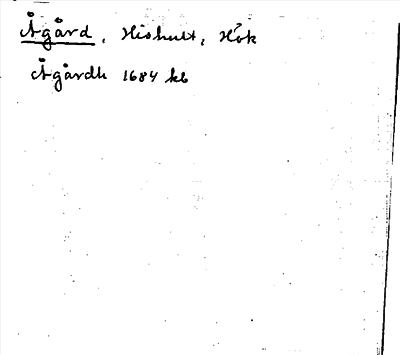 Ågård, Hishult, Hök
Ågårdh 1684 kb